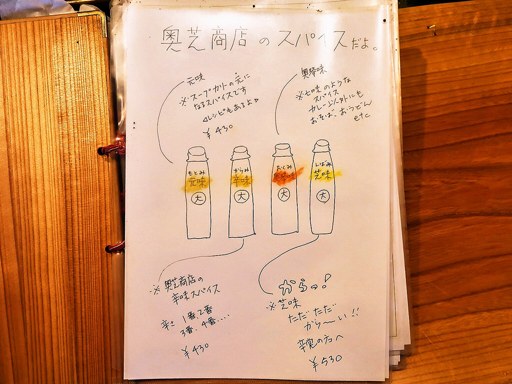 奥芝商店のスパイスだよ。
元味
※スープカリーの元に
なるスパイスです
レシピもあるよ♪
¥430
奥夢味
※七味のような
スパイス
カレー以外にも
おそば、おうどん
etc
もとみ
元味
大
からみ
辛味
大
大
しばみ
芝味
大
※奥芝商店の
辛味スパイス
辛さ 1番、2番
3番、4番…
¥430
からっ!
※芝味
ただ ただただ
から〜い!!
辛鬼の方へ
¥530